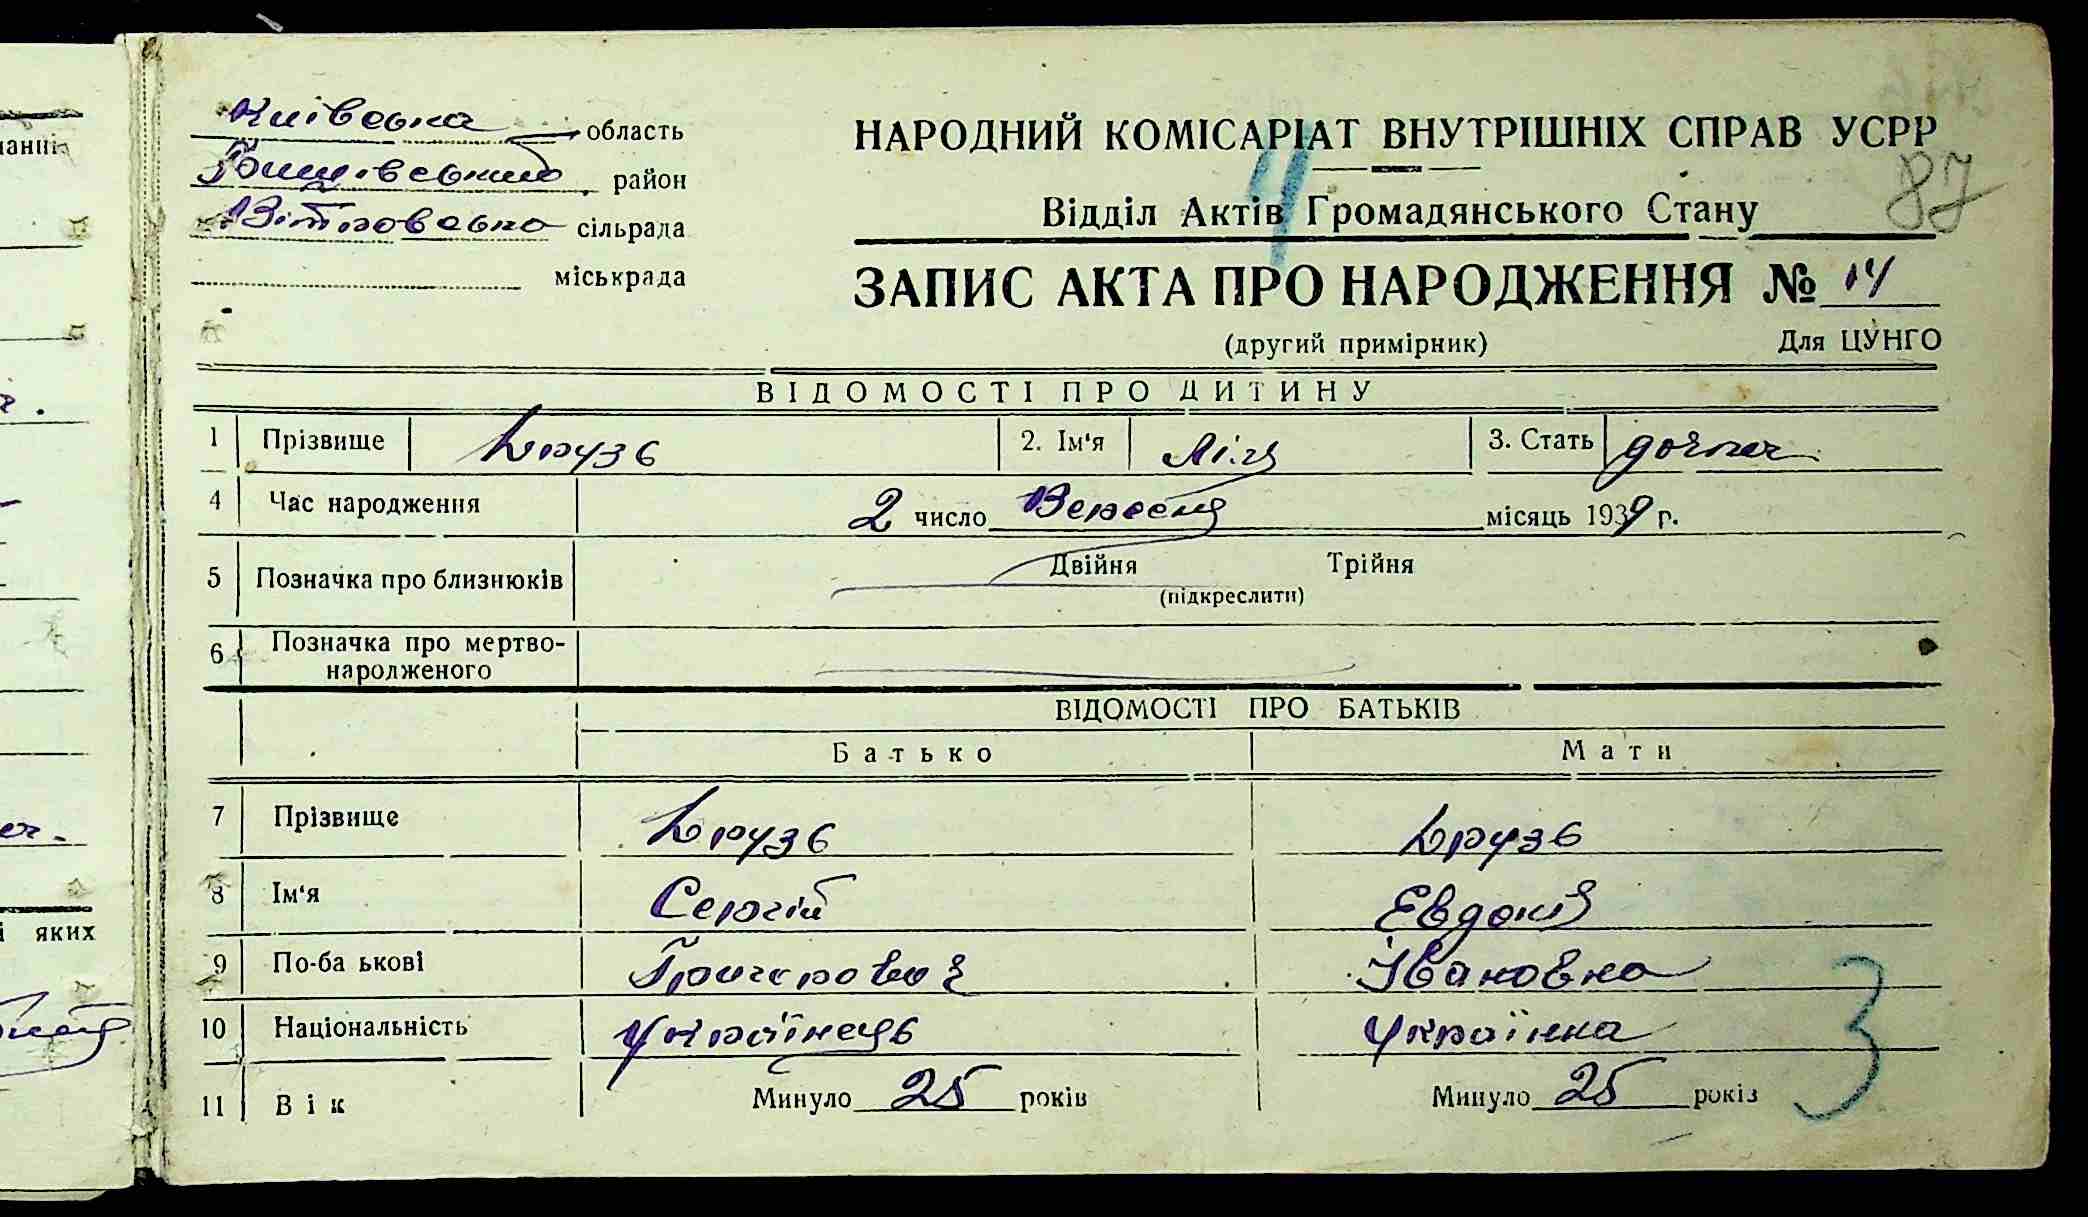 Київська область
район
Вітровська сільрада
міськрада
НАРОДНИЙ КОМІСАРІАТ ВНУТРІШНІХ СПРАВ УСРР
87
Відділ Актів Громадянського Стану
ЗАПИС АКТА ПРО НАРОДЖЕННЯ № 14
(другий примірник) Для ЦУНГО
ВІДОМОСТІ ПРО ДИТИНУ
1 Прізвище Друзь 2. Ім'я Лізя 3. Стать дочка
4 Час народження 2 число Вересня місяць 1939 р.
5 Позначка про близнюків Двійня Трійня
(підкреслити)
6 Позначка про мертво-
народженого
ВІДОМОСТІ ПРО БАТЬКІВ
Батько Мати
7 Прізвище Друзь Друзь
8 Ім'я Сергій Евдокія
9 По-ба ькові Григорович Івановна
10 Національність Українець Українка
11 Вік Минуло 25 років Минуло 25 років
3
анні
і яких